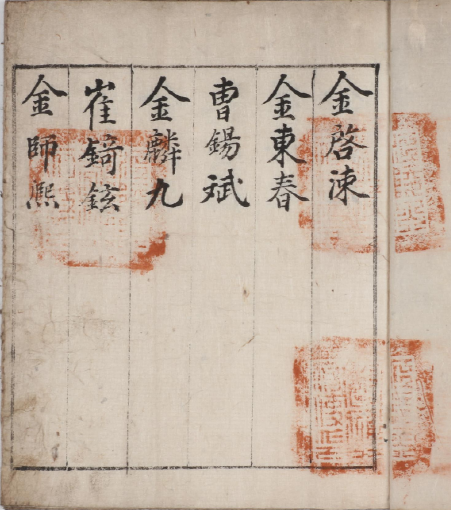 金啓涑
金東春
曹錫斌
金麟九
崔錡鉉
金師熙